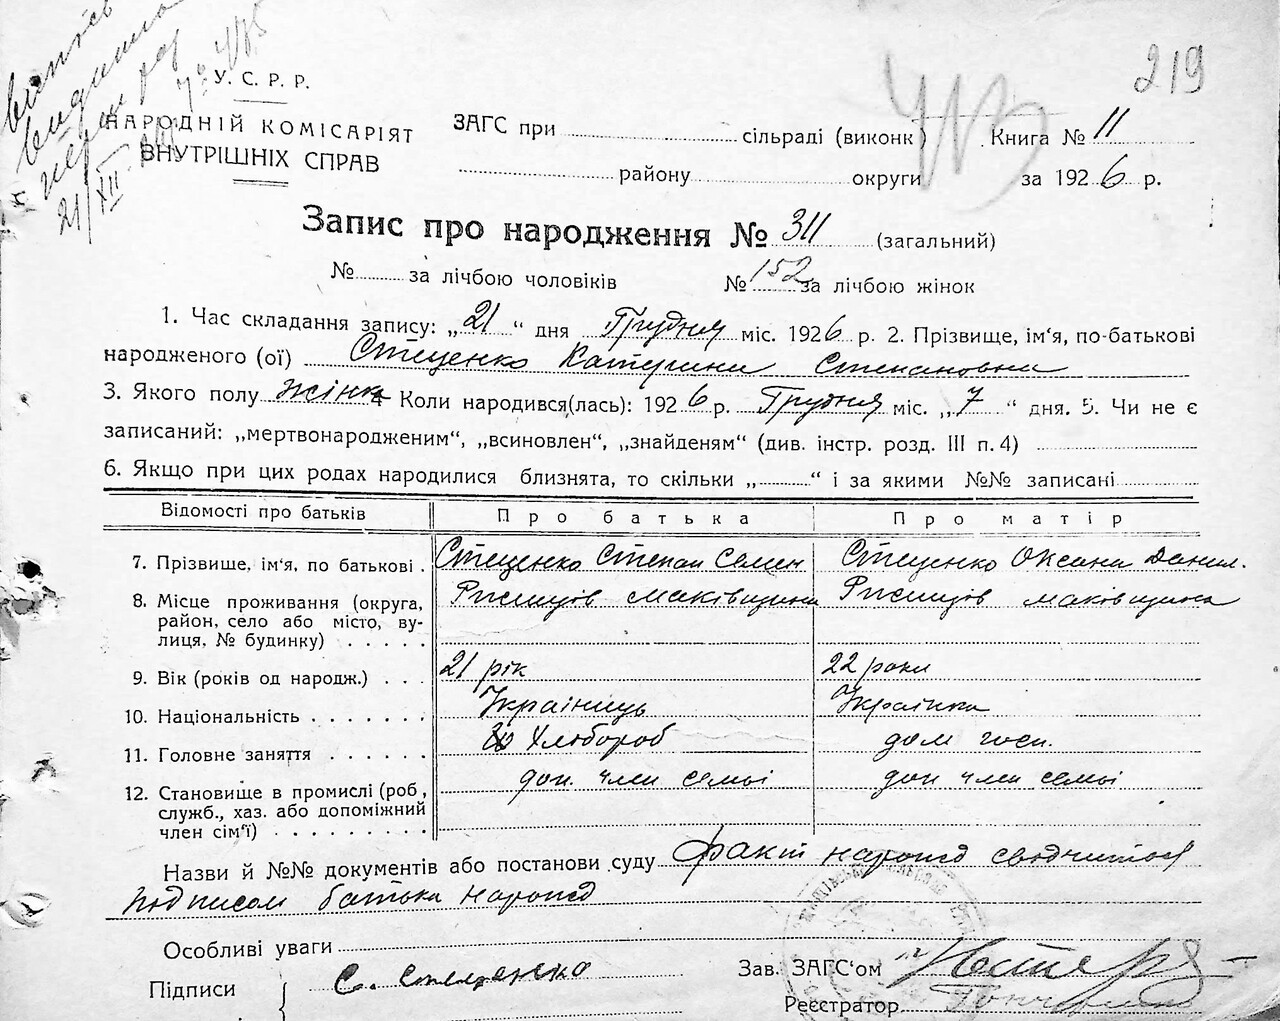 219
У. С. Р. Р.
НАРОДНІЙ КОМІСАРІЯТ
ВНУТРІШНІХ СПРАВ
ЗАГС при сільраді (виконк) Книга № 11
району округи за 1926 р.
Запис про народження № 311 (загальний)
№ за лічбою чоловіків № 152 за лічбою жінок
1. Час складання запису: „21“ дня Грудня міс. 1926 р. 2. Прізвище, ім‘я, по-батькові
народженого (ої) Стеценко Катерина Степановна
3. Якого полу жінка 4 Коли народився(лась): 1926 р. Грудня міс. „7“ дня. 5. Чи не є
записаний: „мертвонародженим“, „всиновлен“, „знайденям“ (див. інстр. розд. III п. 4)
6. Якщо при цих родах народилися близнята, то скільки „ “ і за якими №№ записані
Відомості про батьків Про батька Про матір
7. Прізвище, ім‘я, по батькові . Стеценко Степан Семен Стеценко Оксана Данил.
8. Місце проживання (округа, маківщина маківщина
район, село або місто, ву-
лиця, № будинку) . . . . .
9. Вік (років од народж.) . . . 21 рік 22 роки
10. Національність . . . . . . . Українець Українка
11. Головне заняття . . . . . . Хлібороб дом госп.
12. Становище в промислі (роб, доп член семьі доп член семьі
служб., хаз. або допоміжний
член сім‘ї) . . . . . . . . .
Назви й №№ документів або постанови суду факт народ
подписом батька народ
Особливі уваги
Підписи С. Стеценко Зав. ЗАГС‘ом
Реєстратор